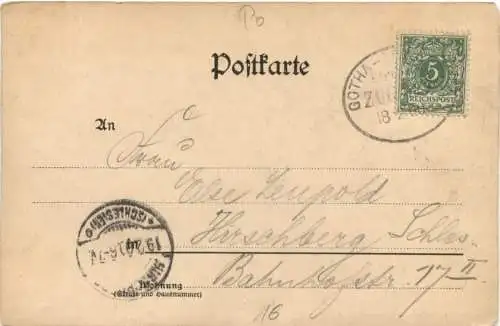 Po
Postkarte
GOTHA
ZUG
18
5
REICHSPOST
An
Frau
Else Leupold
Hirschberg Schles.
Bahnhofstr. 17 II
(SCHLESIEN)
19.2.
6-7V
Wohnung
(Straße und Hausnummer)
16